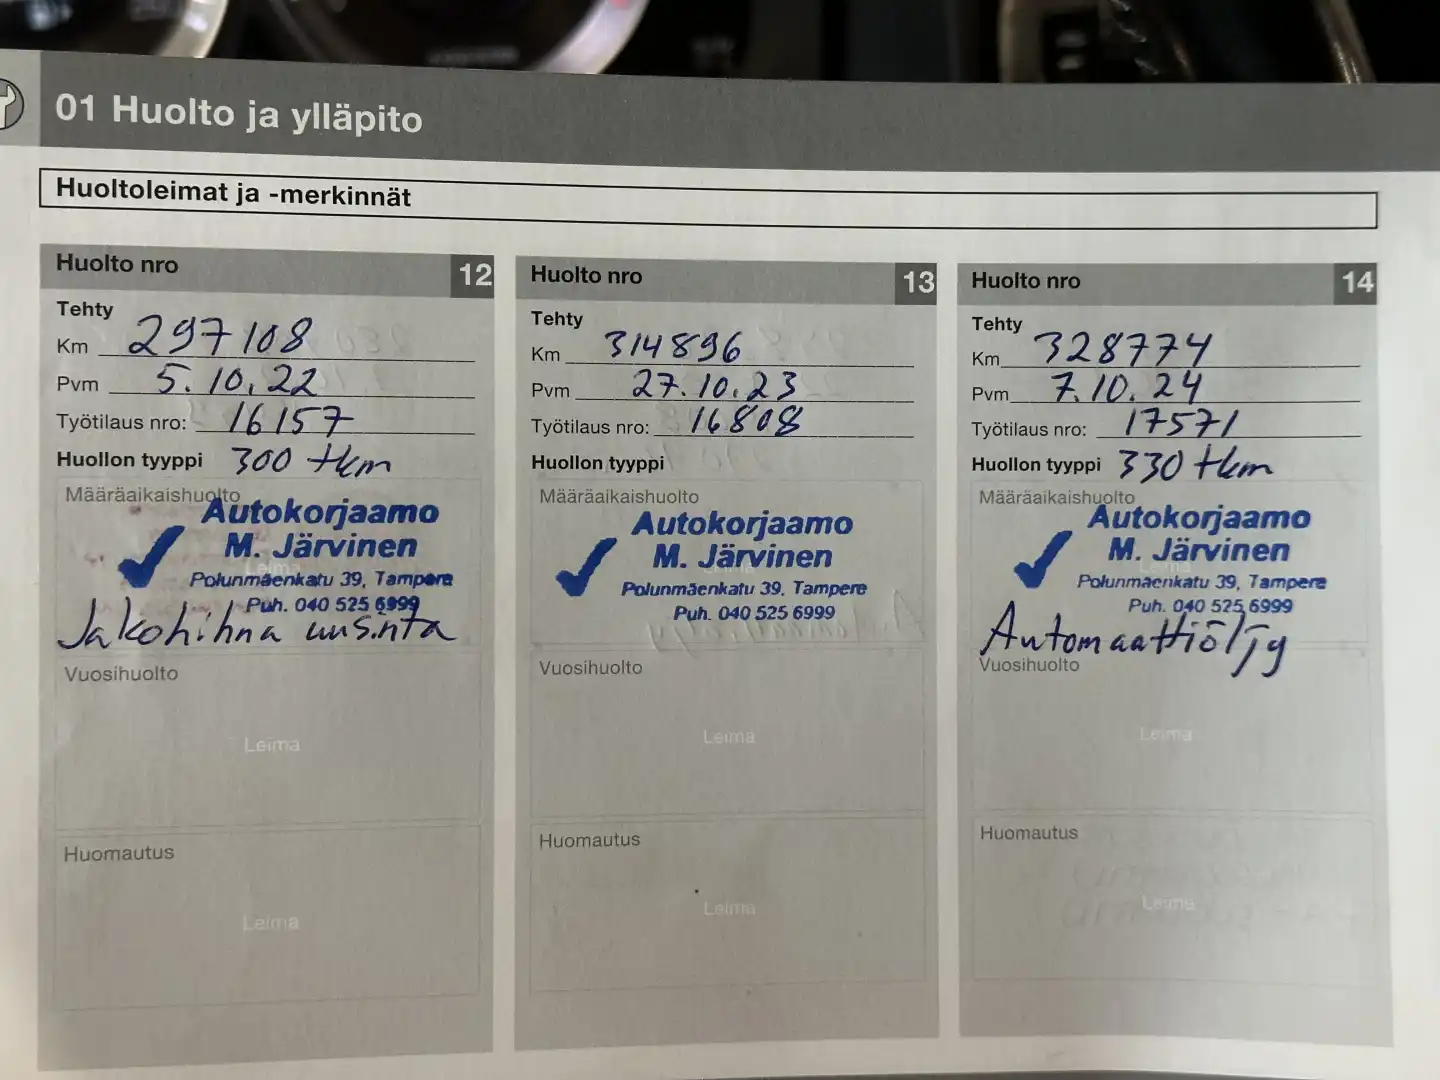 01 Huolto ja ylläpito
Huoltoleimat ja -merkinnät
Huolto nro 12
Tehty
Km 297108
Pvm 5.10.22
Työtilaus nro: 16157
Huollon tyyppi 300 tkm
Määräaikaishuolto
Autokorjaamo
M. Järvinen
Leima
Polunmäenkatu 39, Tampere
Puh. 040 525 6999
Jakohihna uusinta
Vuosihuolto
Leima
Huomautus
Leima
Huolto nro 13
Tehty
Km 314896
Pvm 27.10.23
Työtilaus nro: 16808
Huollon tyyppi
Määräaikaishuolto
Autokorjaamo
M. Järvinen
Leima
Polunmäenkatu 39, Tampere
Puh. 040 525 6999
Vuosihuolto
Leima
Huomautus
Leima
Huolto nro 14
Tehty
Km 328774
Pvm 7.10.24
Työtilaus nro: 17571
Huollon tyyppi 330 tkm
Määräaikaishuolto
Autokorjaamo
M. Järvinen
Leima
Polunmäenkatu 39, Tampere
Puh. 040 525 6999
Automaattiöljy
Vuosihuolto
Leima
Huomautus
Leima